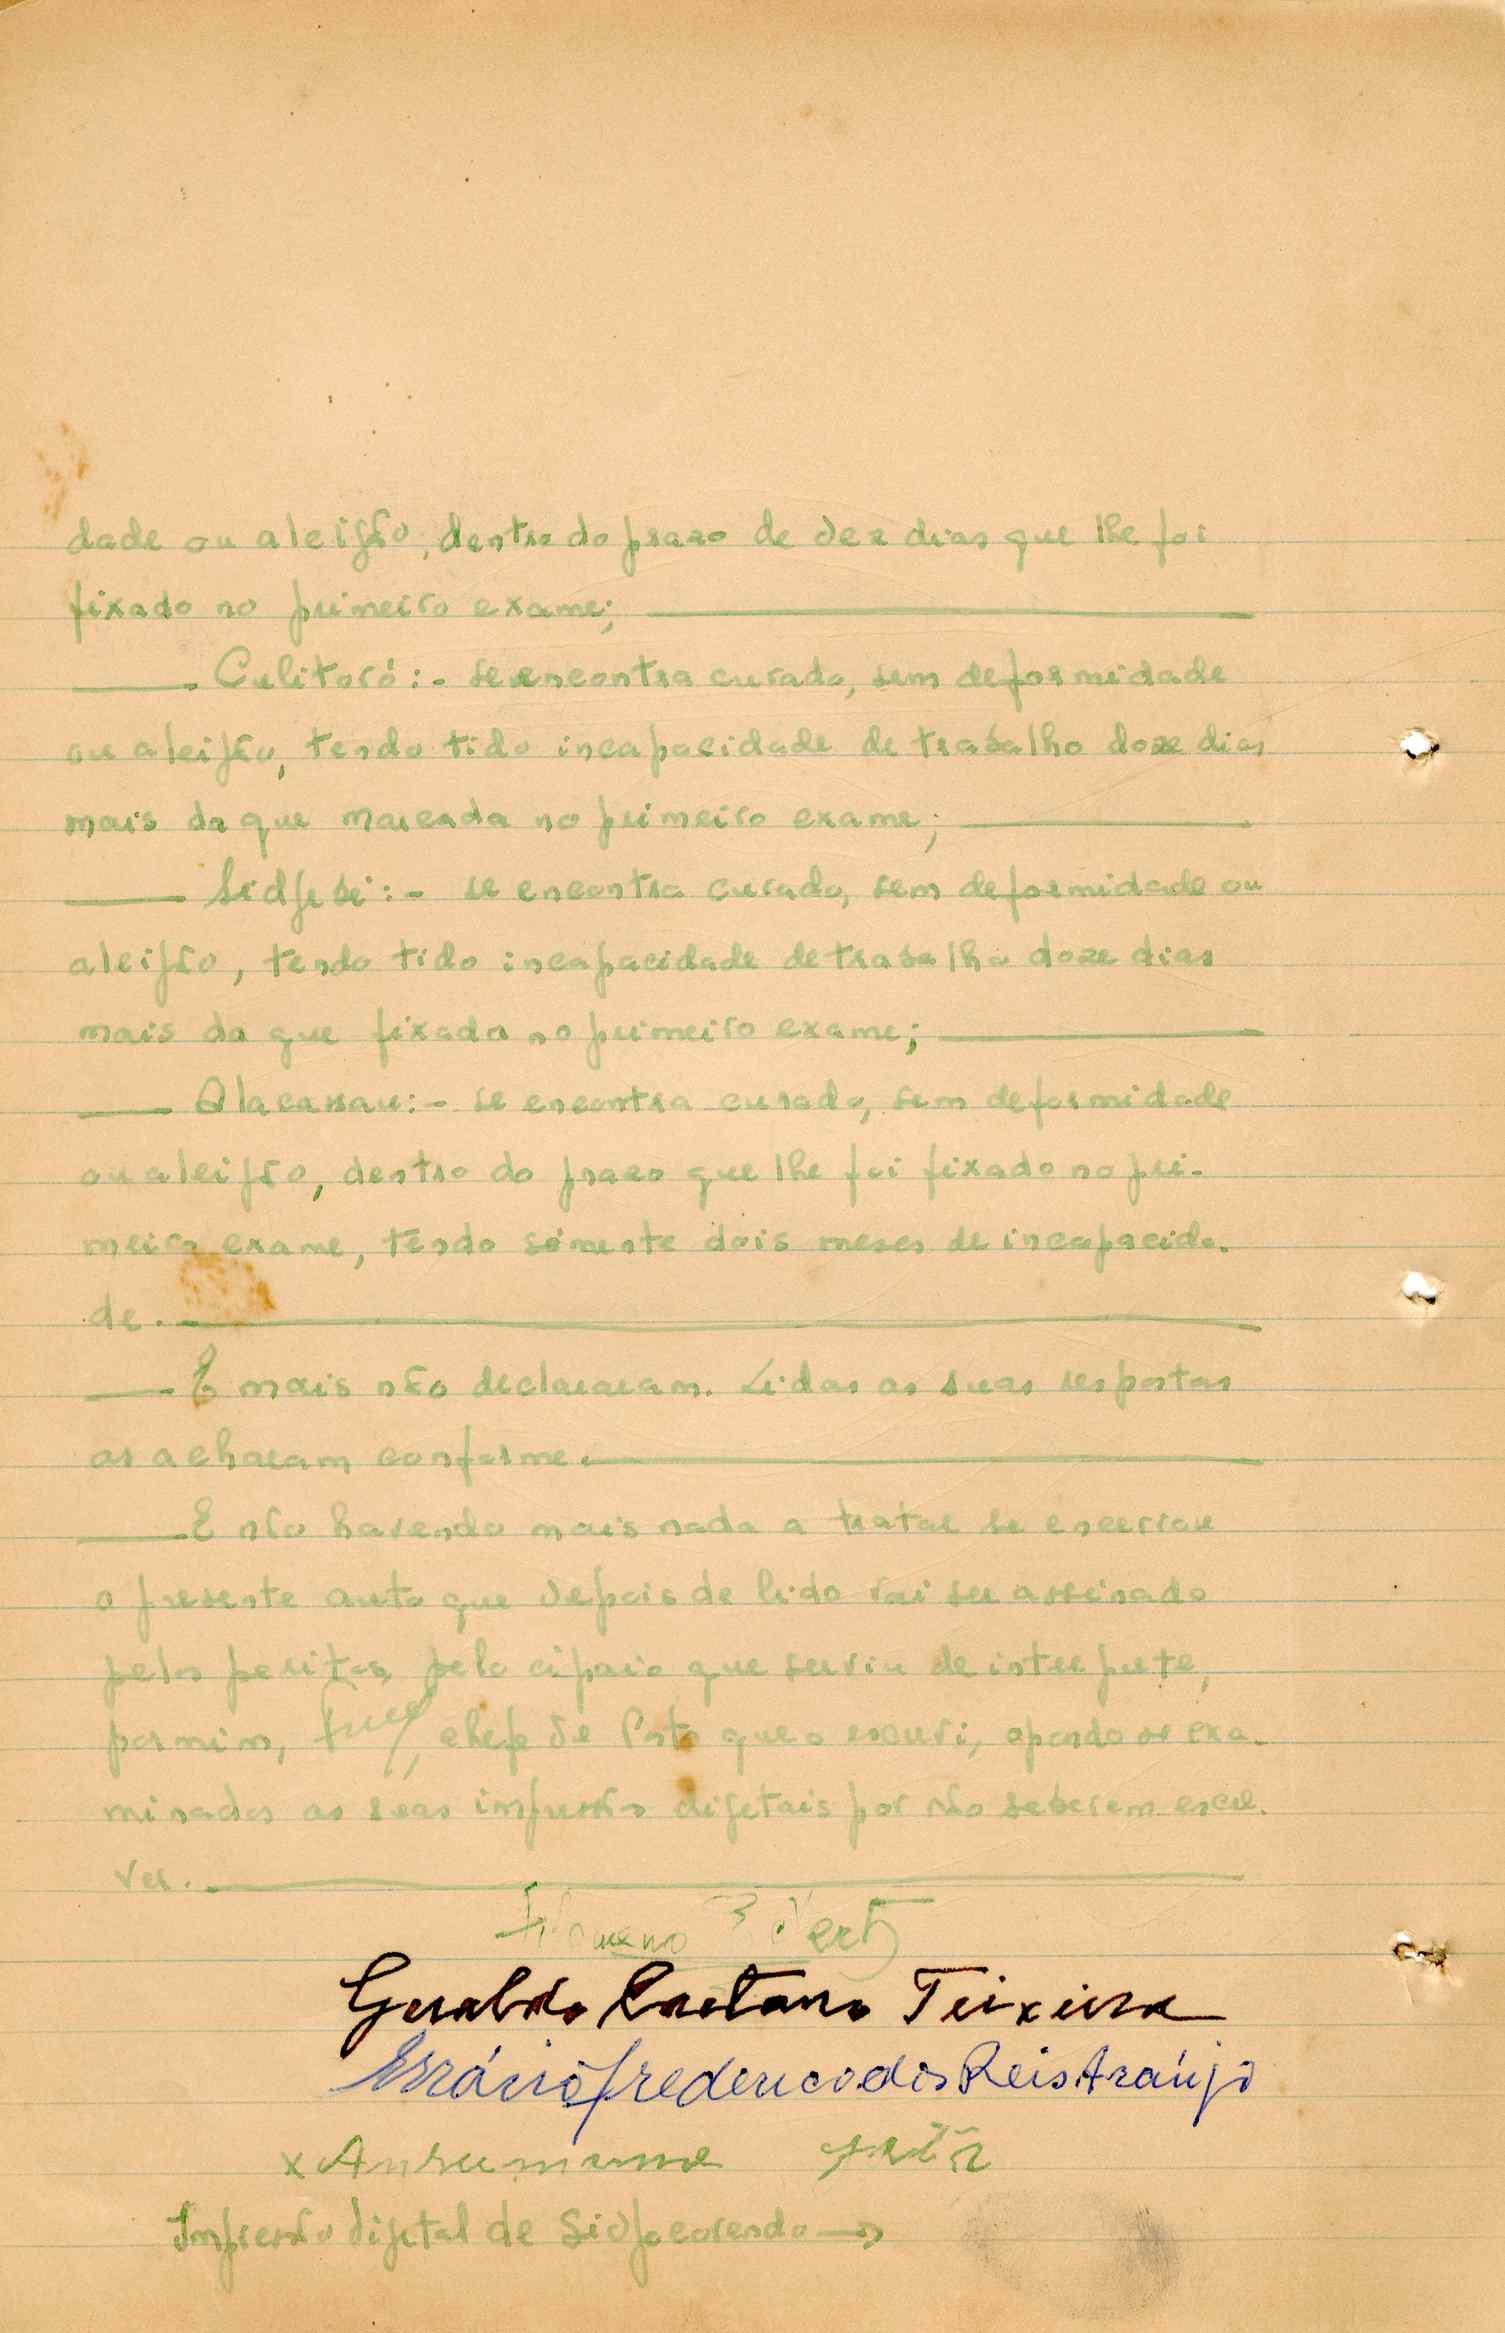 dade ou aleijão, dentro do prazo de dez dias que lhe foi
fixado no primeiro exame;
Culitoró:- se encontra curado, sem deformidade
ou aleijão, tendo tido incapacidade de trabalho doze dias
mais do que marcada no primeiro exame;
se encontra curado, sem deformidade ou
aleijão, tendo tido incapacidade de trabalho doze dias
mais do que fixada no primeiro exame;
se encontra curado, sem deformidade
ou aleijão, dentro do prazo que lhe foi fixado no pri-
meiro exame, tendo sómente dois meses de incapacida-
de.
E mais não declararam. Lidas as suas respostas
as acharam conforme.
E não havendo mais nada a tratar se encerrou
o presente auto que depois de lido vai ser assinado
pelos peritos, pelo cipaio que serviu de interprete,
por mim, chefe de Posto que o escrevi, apondo os exa-
minados as suas impressões digitais por não saberem escre-
ver.
Geraldo Caetano Teixeira
Frederico dos Reis Araújo
x
Impressão digital de